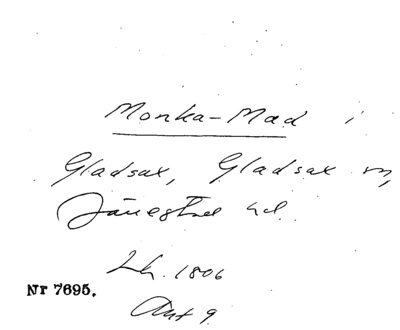 Monka-Mad i
Gladsax, Gladsax sn,
Järrestad hd.
Lh. 1806
Akt 9
Nr 7695.